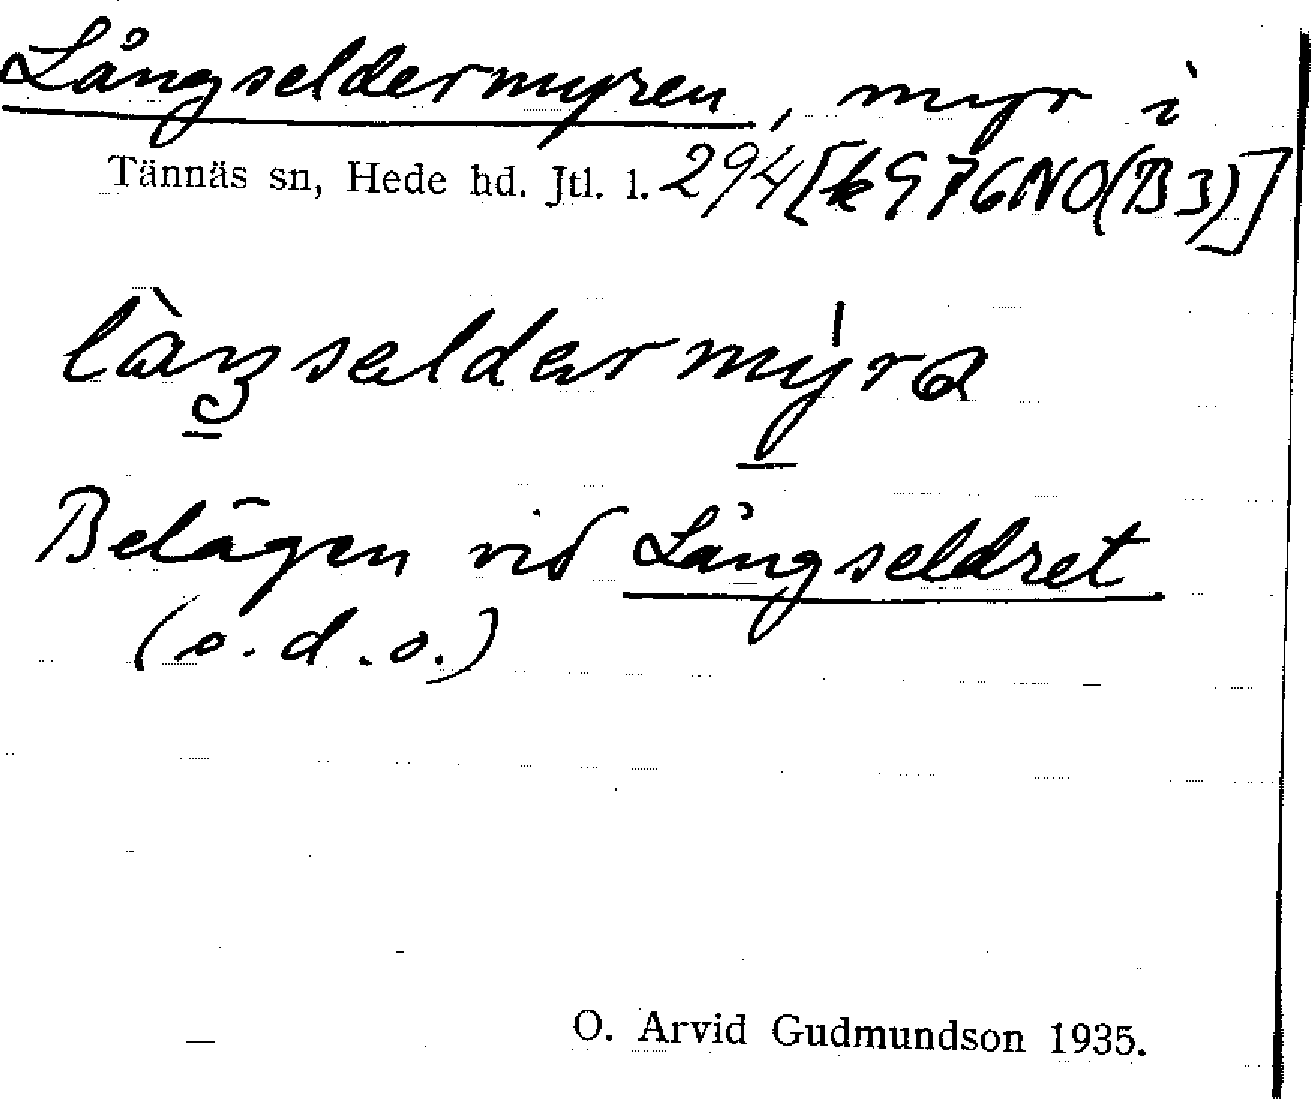 Långseldermyren, myr i
Tännäs sn, Hede hd. Jtl. l. 294 [k 976NO(B3)]
Belägen vid Långseldret
(s.d.o.)
O. Arvid Gudmundson 1935.